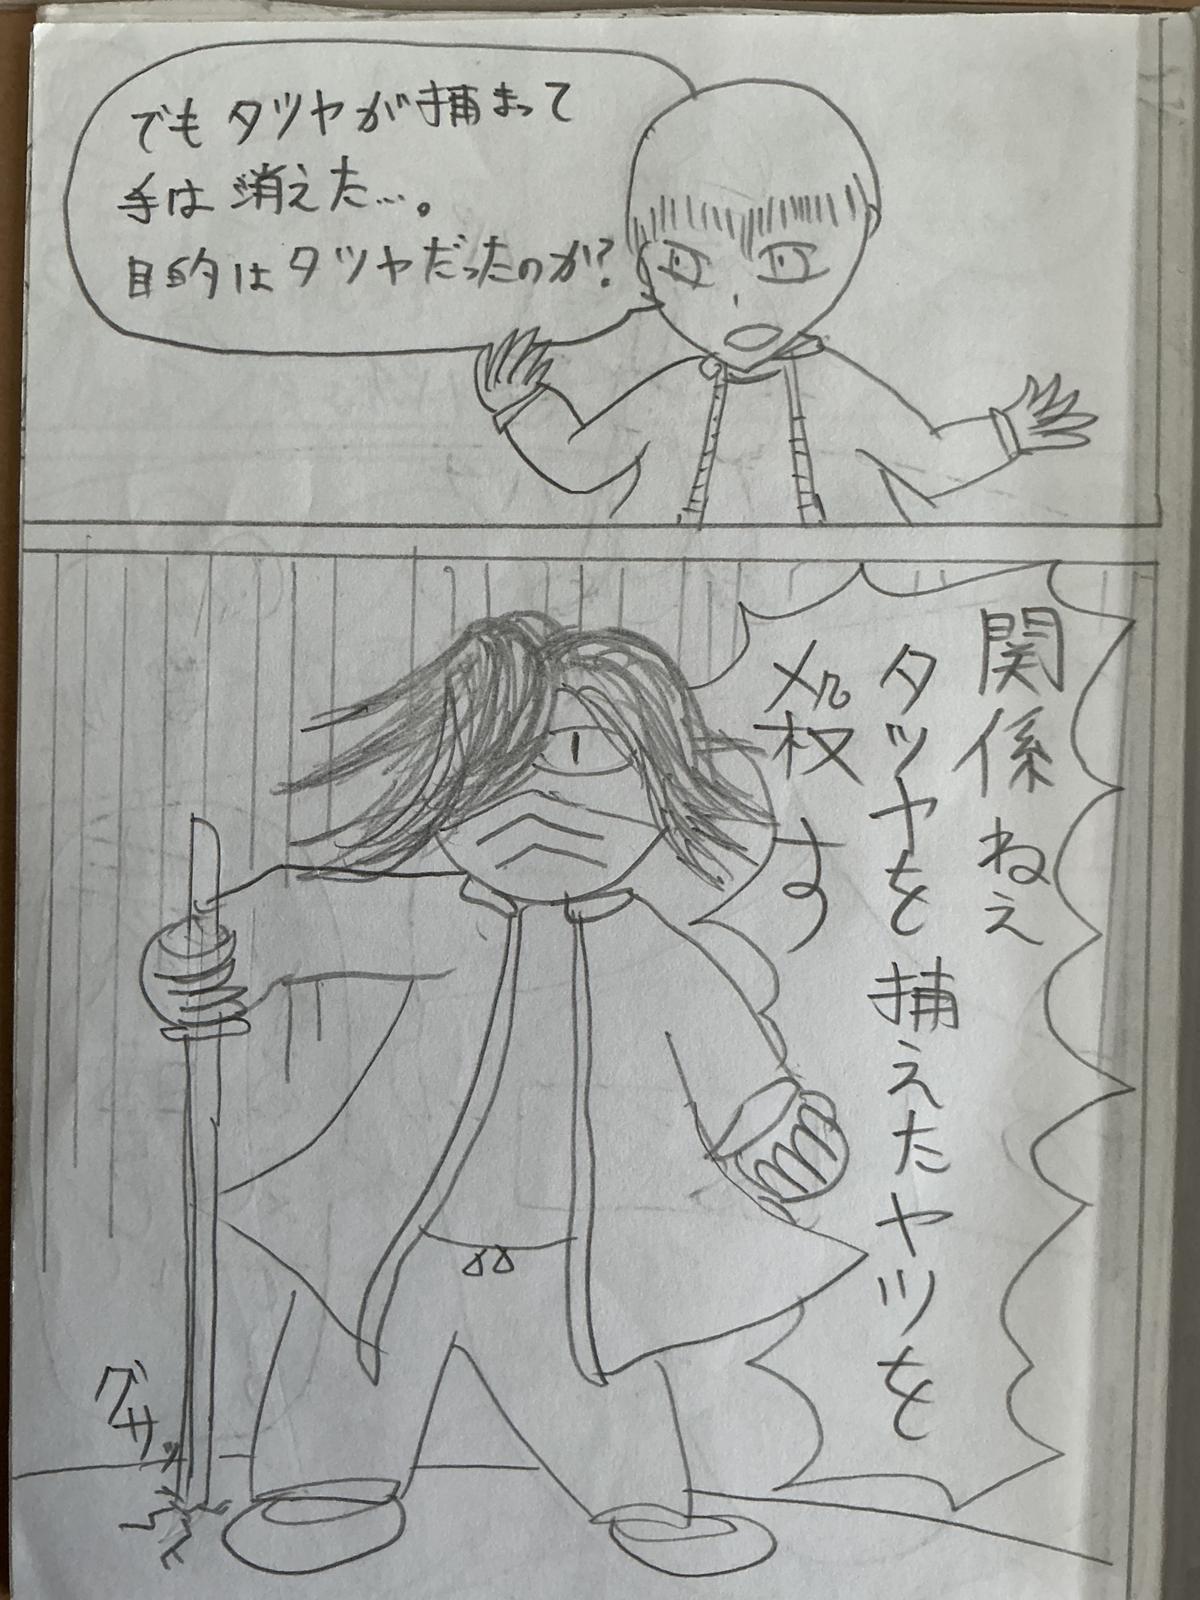 でもタツヤが捕まって
手は消えた…。
目的はタツヤだったのか?
関係ねぇ
タツヤを捕えたヤツを
殺す
グサッ